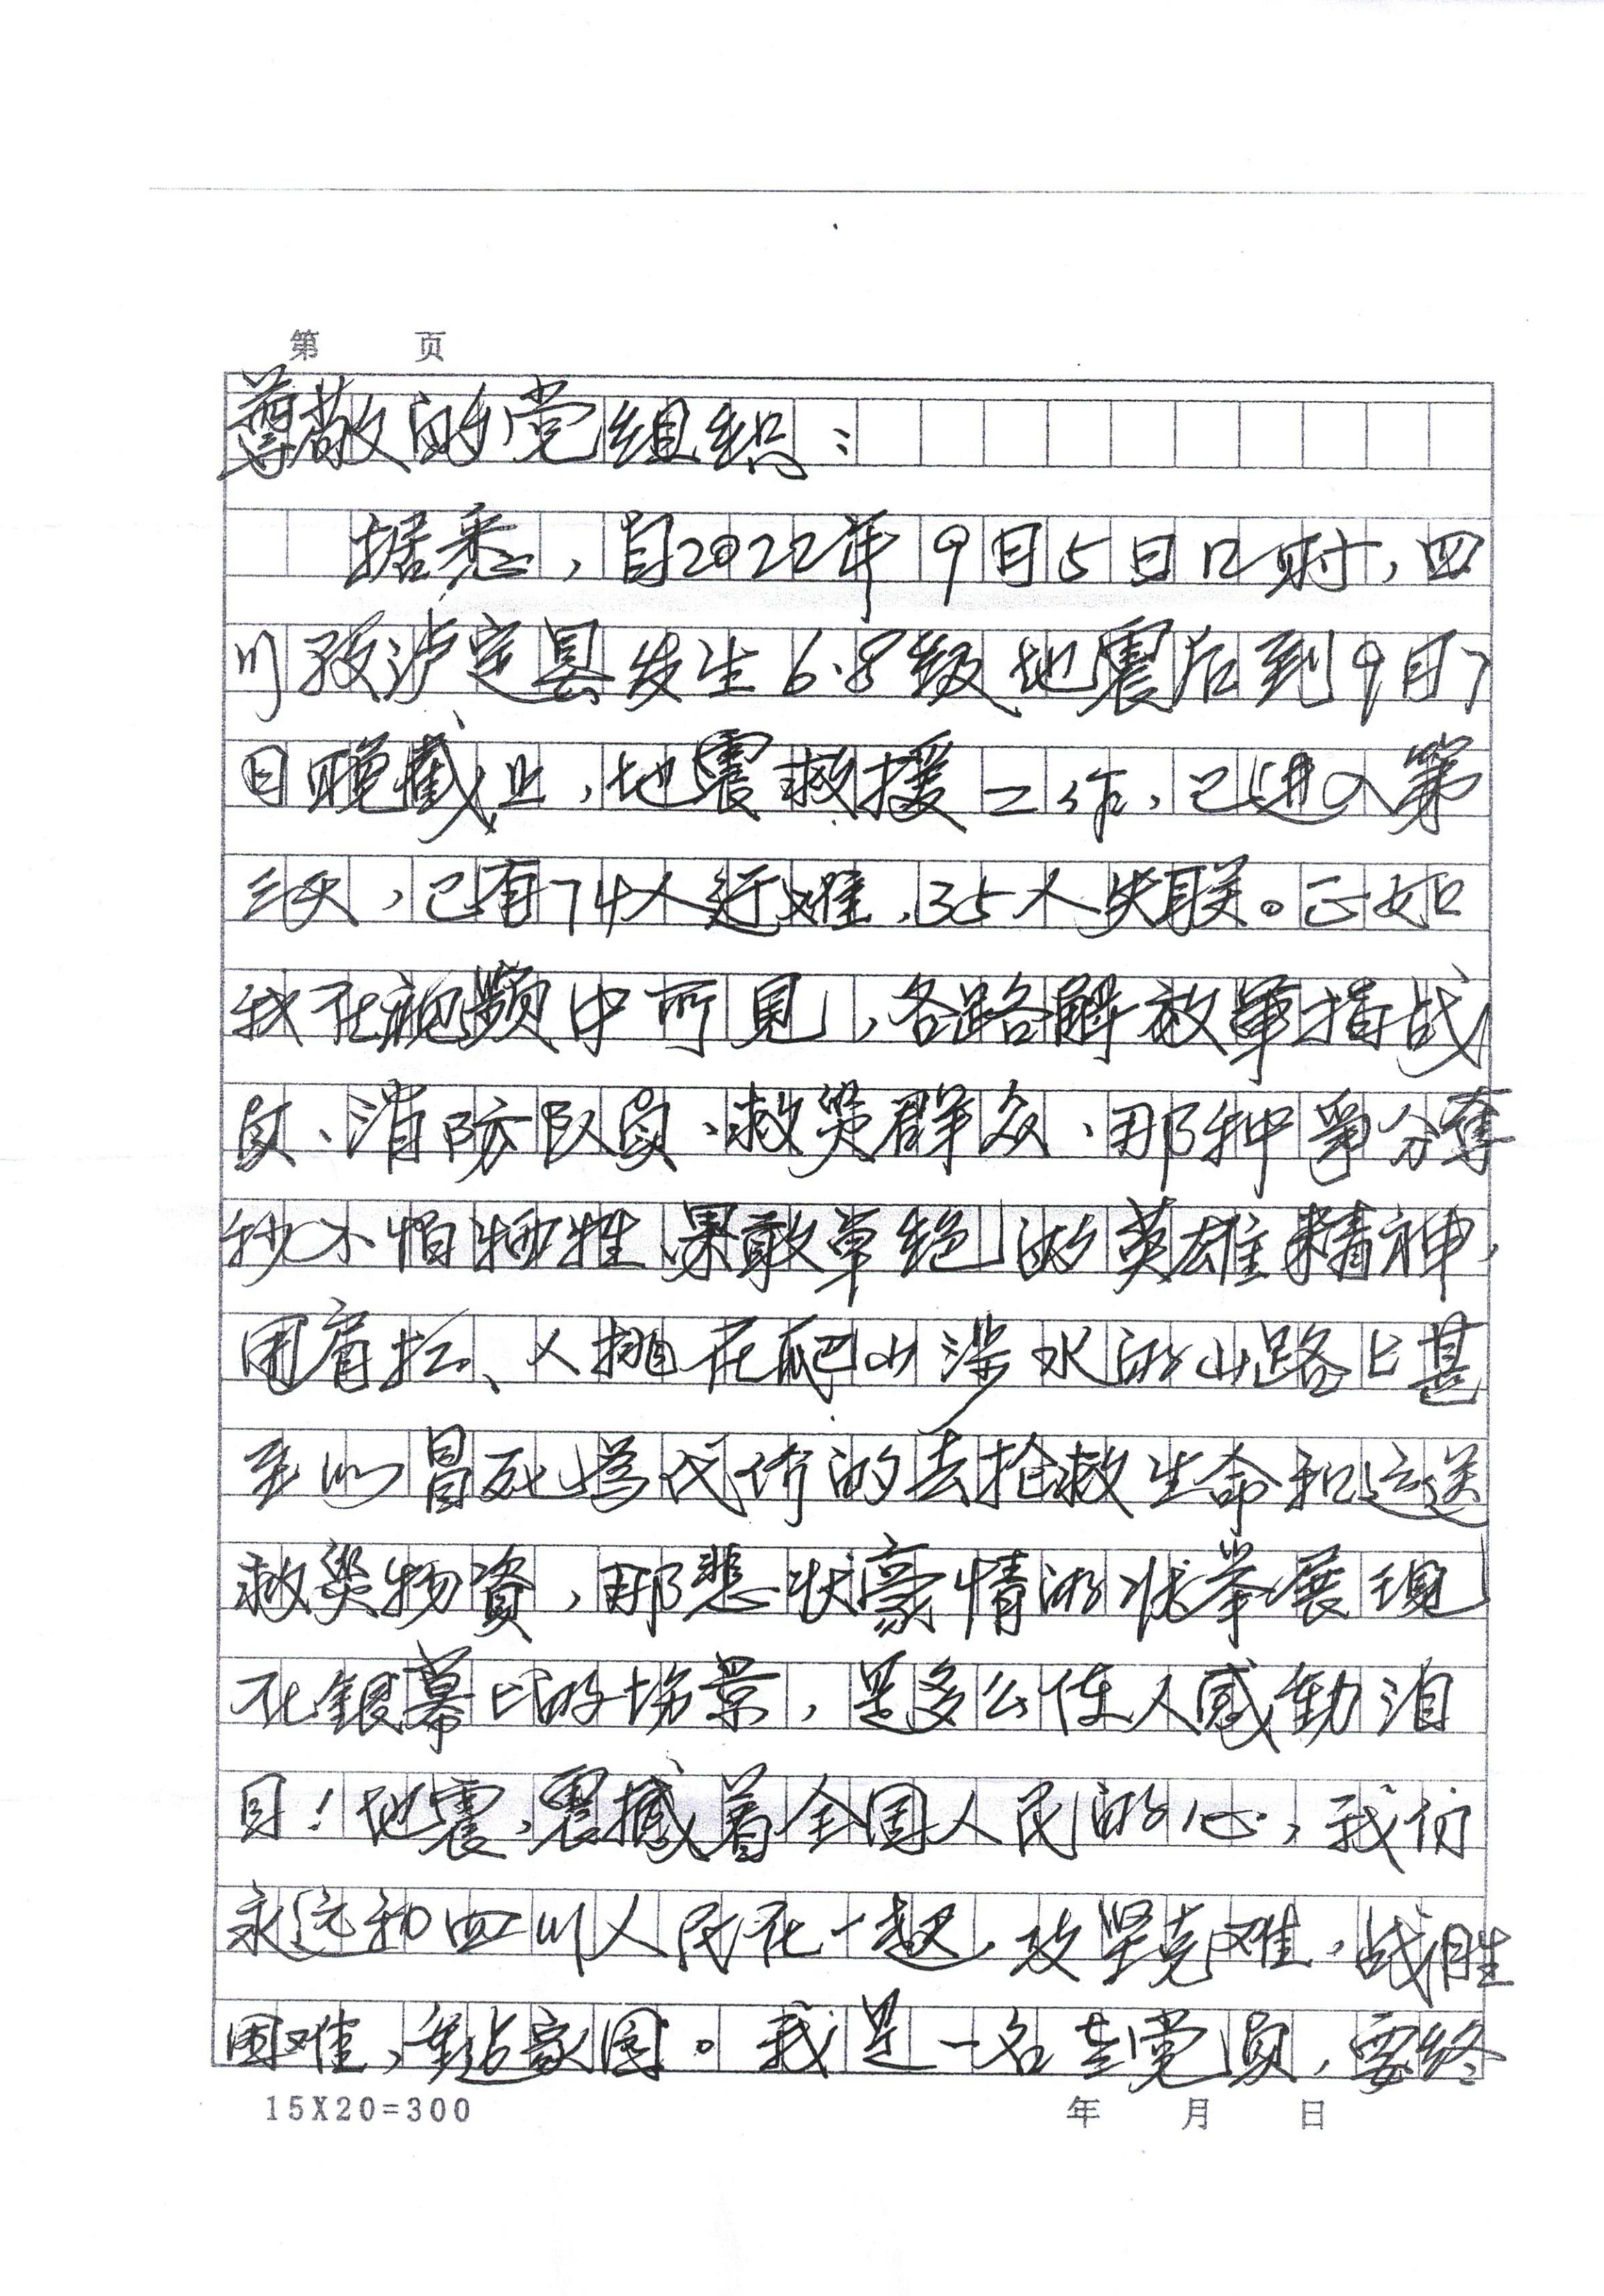 第 页
尊敬的党组织：
据悉，自2022年9月5日12时，四
川孜泸定县发生6.8级地震后到9月7
日晚截止，地震救援工作，已进入第
三天，已有74人遇难，35人失联。正如
我在视频中所见，各路解放军指战
员、消防队员、救灾群众、那种争分夺
秒不怕牺牲、果敢卓绝的英雄精神，
用肩扛、人挑在爬山涉水的山路上甚
至以冒死为代价的去抢救生命和运送
救灾物資，那悲状豪情的状举展现
在银幕上的场景，是多么使人感動泪
目！地震，震撼着全国人民的心，我们
永远和四川人民在一起，攻坚克难，战胜
困难，重建家园。我是一名老党员，要终
15X20=300 年 月 日